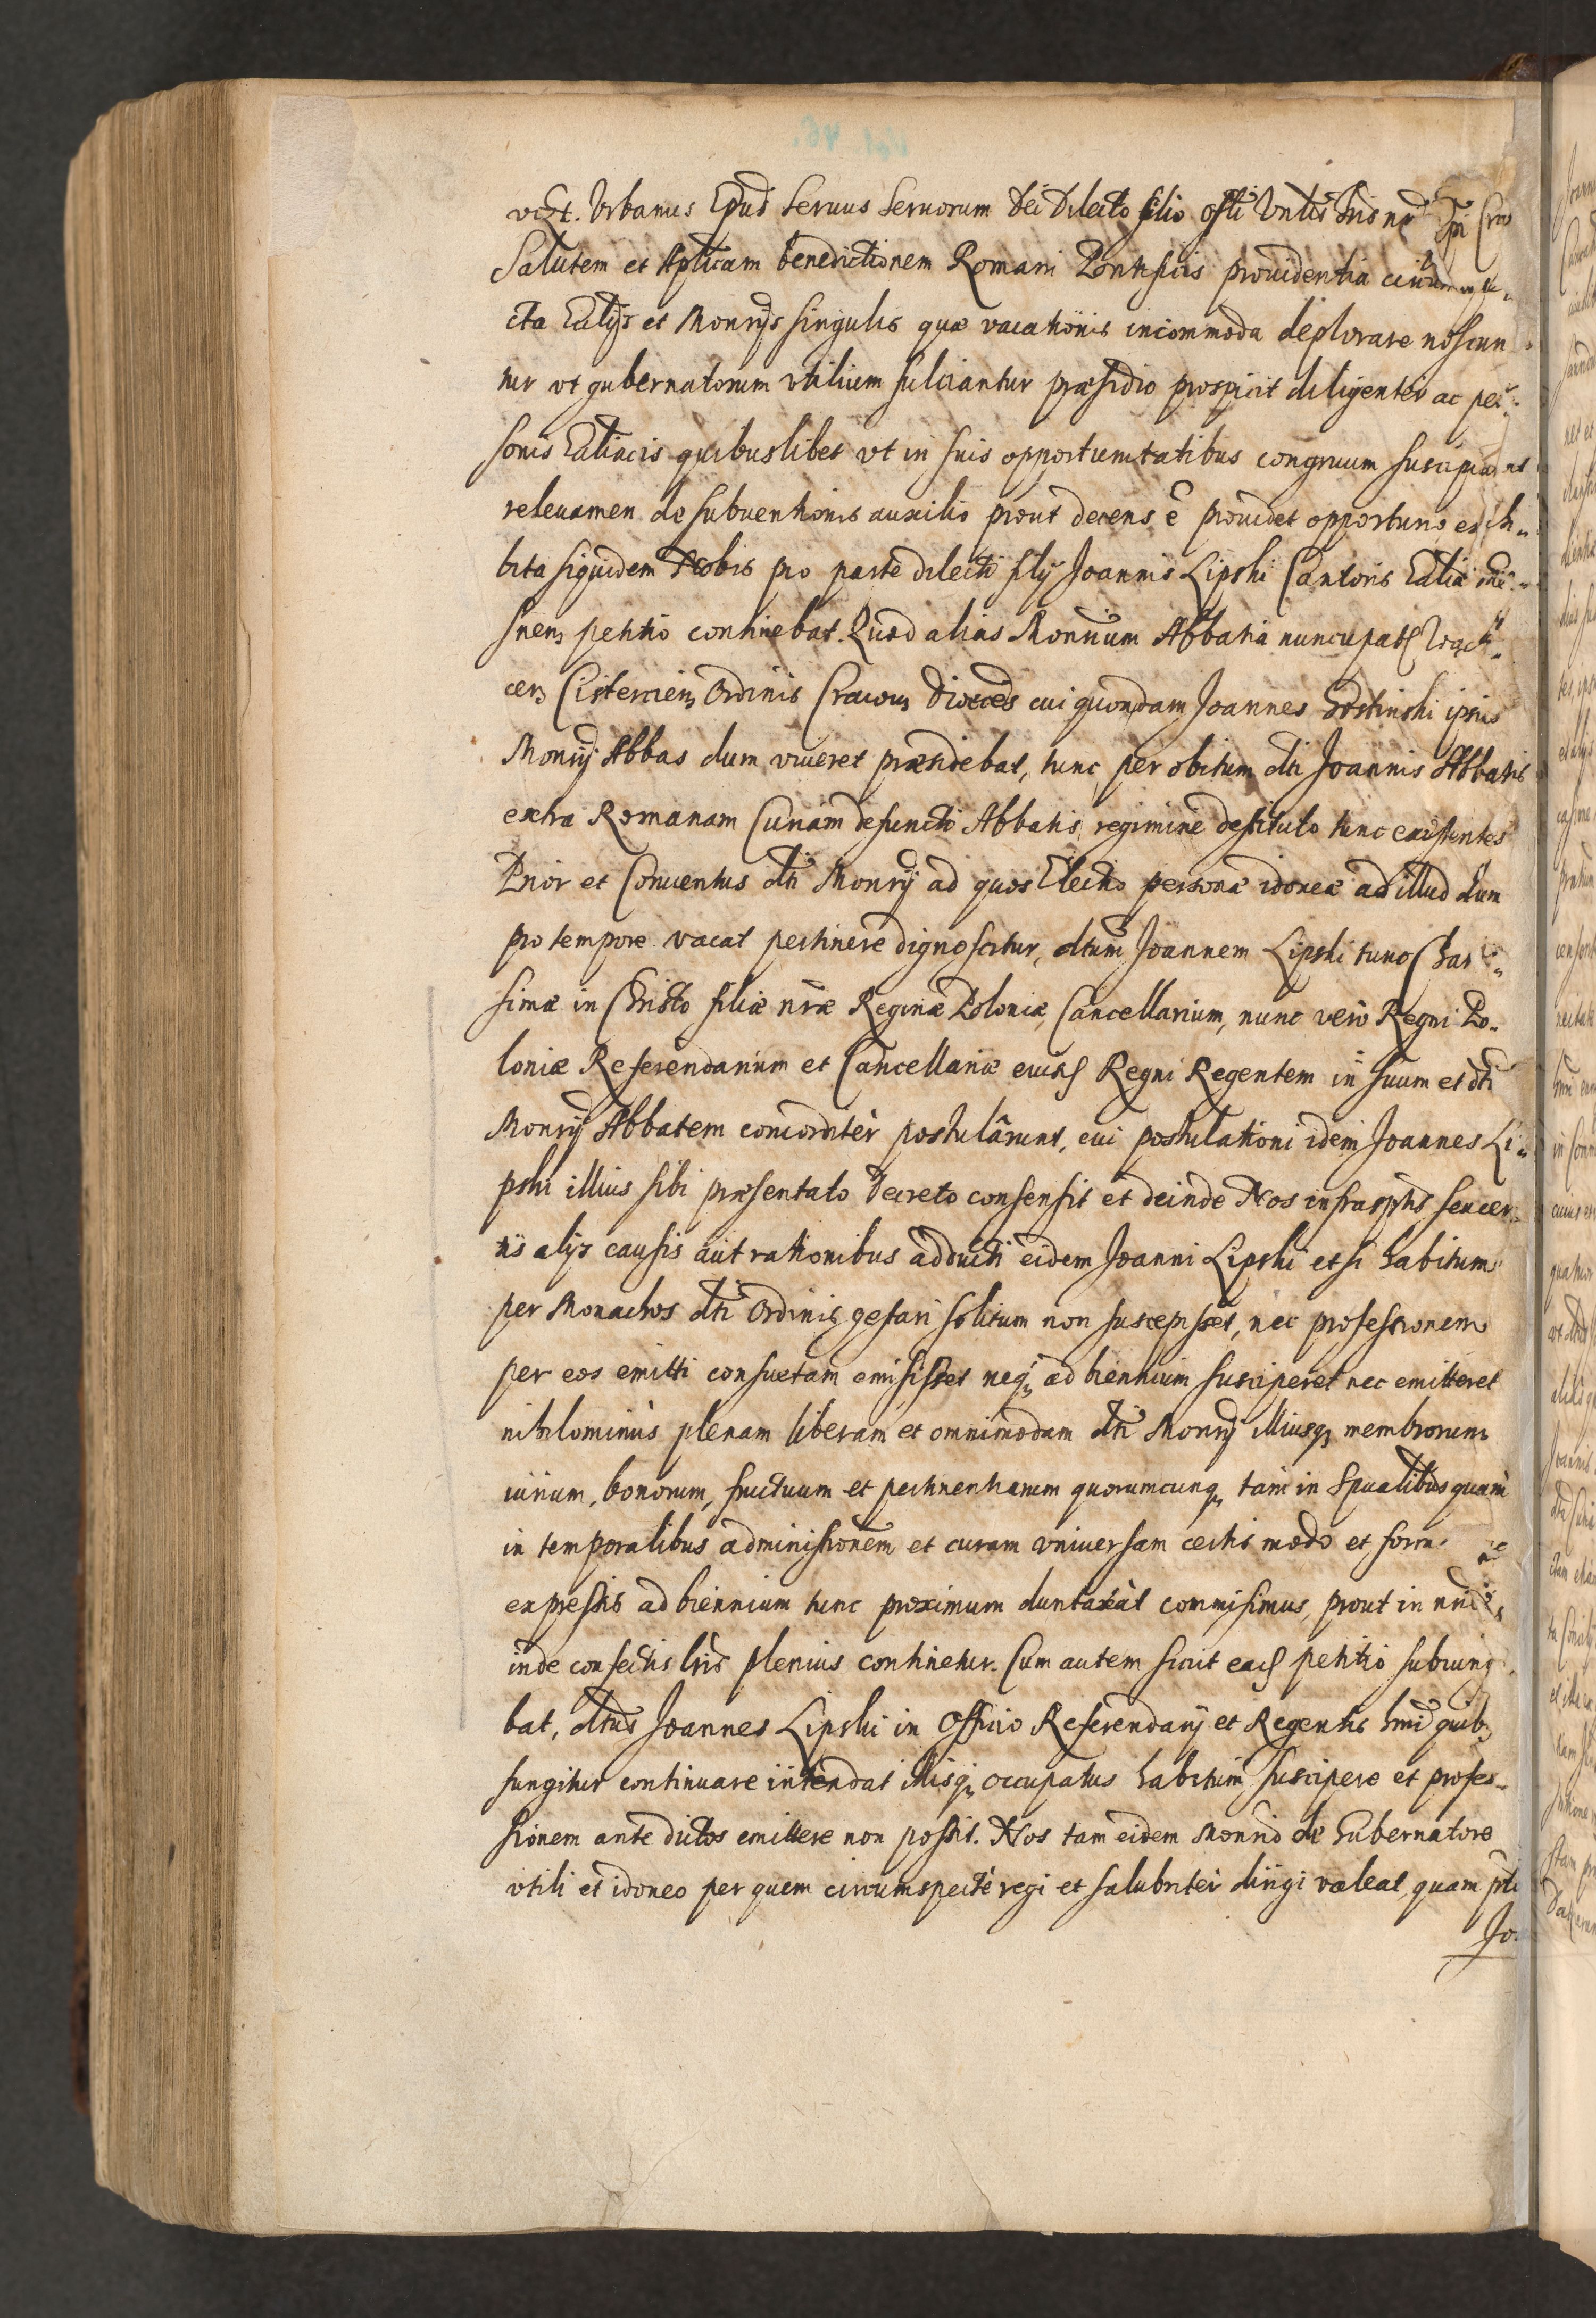 vczt. Vrbanus Epus Seruus Seruorum Dei Dilecto filio offli Vnlis fris nri Epi Crac
Salutem et Aplicam benedictionem Romani Pontificis prouidentia circumspe„
cta Ecclijs et Monrijs singulis quæ vacationis incommoda deplorare noscun
tur vt gubernatorum vtilium fulciantur præsidio prospicit diligenter ac per„
sonis Eccliacis quibuslibet vt in suis opportunitatibus congruum suscipiant
releuamen de subuentionis auxilio prout decens ẽ prouidet opportuno exhi„
bita siquidem Nobis pro parte dilecti filij Joannis Lipski Cantoris Ecclia
snen petitio continebat. Quod alias Monrium Abbatia nuncupat
cen Cistercien Ordinis Cracouien Dioeces cui quondam Joannes ipsius
Monrij Abbas dum viueret præsidebat, tunc per obitum dti Joannis Abbatis
extra Romanam Curiam defuncti Abbatis regimine destituto tunc existentes
Prior et Conuentus dti Monrij ad quos Electio personæ idoneæ ad illud dum
pro tempore vacat pertinere dignoscitur, dtum Joannem Lipski tunc Chari„
simæ in Christo filiæ nræ Reginæ Poloniæ Cancellarium, nunc verò Regni Po„
loniæ Referendarium et Cancellariæ eiusd Regni Regentem in suum et dti
Monrij Abbatem concorditèr postulârunt, cui postulationi idem Joannes Li„
pski illius sibi præsentato Decreto consensit et deinde Nos infrasptis seu cer„
tis alijs causis aut rationibus adducti eidem Joanni Lipski etsi habitum
per Monachos dti Ordinis gestari solitum non suscepisset, nec professionem
per eos emitti consuetam emisisset neq ad biennium susciperet nec emitteret
nihilominùs plenam liberam et omnimodam dti Monrij illiusq membrorum
iurium, bonorum, fructuum et pertinentiarum quorumcunq tàm in spualibus quàm
in temporalibus administionem et curam vniuersam certis modo et form
expressis ad biennium tunc proximum duntaxàt commisimus, prout in nris
inde confectis lris plenius continetur. Cum autem sicut ead petitio subiung
bat, dtus Joannes Lipski in Officio Referendarij et Regentis hmdi quib
fungitur continuare intendat illisq occupatus habitum suscipere et profes„
sionem ante dictos emittere non possit. Nos tam eidem Monrio de Gubernatore
vtili et idoneo per quem circumspectè regi et salubritèr dirigi valeat, quam pti
Joa